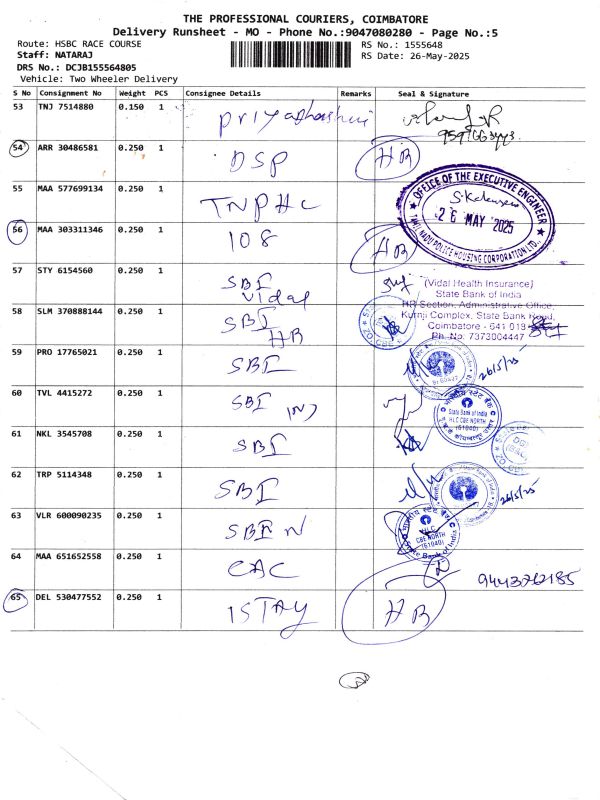 THE PROFESSIONAL COURIERS, COIMBATORE
Delivery Runsheet - MO - Phone No.:9047080280 - Page No.:5
Route: HSBC RACE COURSE
RS No.: 1555648
Staff: NATARAJ
RS Date: 26-May-2025
DRS No.: DCJB155564805
Vehicle: Two Wheeler Delivery
S No Consignment No Weight PCS Consignee Details Remarks Seal & Signature
53 TNJ 7514880 0.150 1
54 ARR 30486581 0.250 1 DSP HB
55 MAA 577699134 0.250 1 TNPHC
OFFICE OF THE EXECUTIVE ENGINEER
26 MAY 2025
TAMIL NADU POLICE HOUSING CORPORATION LTD.,
56 MAA 303311346 0.250 1 108 HB
57 STY 6154560 0.250 1 SBI
Vidal
(Vidal Health Insurance)
State Bank of India
HR Section, Administrative Office,
Kurnji Complex, State Bank Road,
Coimbatore - 641 018
Ph. No: 7373004447
58 SLM 370888144 0.250 1 SBI
HB
59 PRO 17765021 0.250 1 SBI 26/5/25
60 TVL 4415272 0.250 1 SBI
State Bank of India
HLC CBE NORTH
(61040)
61 NKL 3545708 0.250 1 SBI
62 TRP 5114348 0.250 1 SBI 26/5/25
63 VLR 600090235 0.250 1 SBI N
HLC
CBE NORTH
(61040)
State Bank of India
64 MAA 651652558 0.250 1 CAC
65 DEL 530477552 0.250 1 ISTAY HB